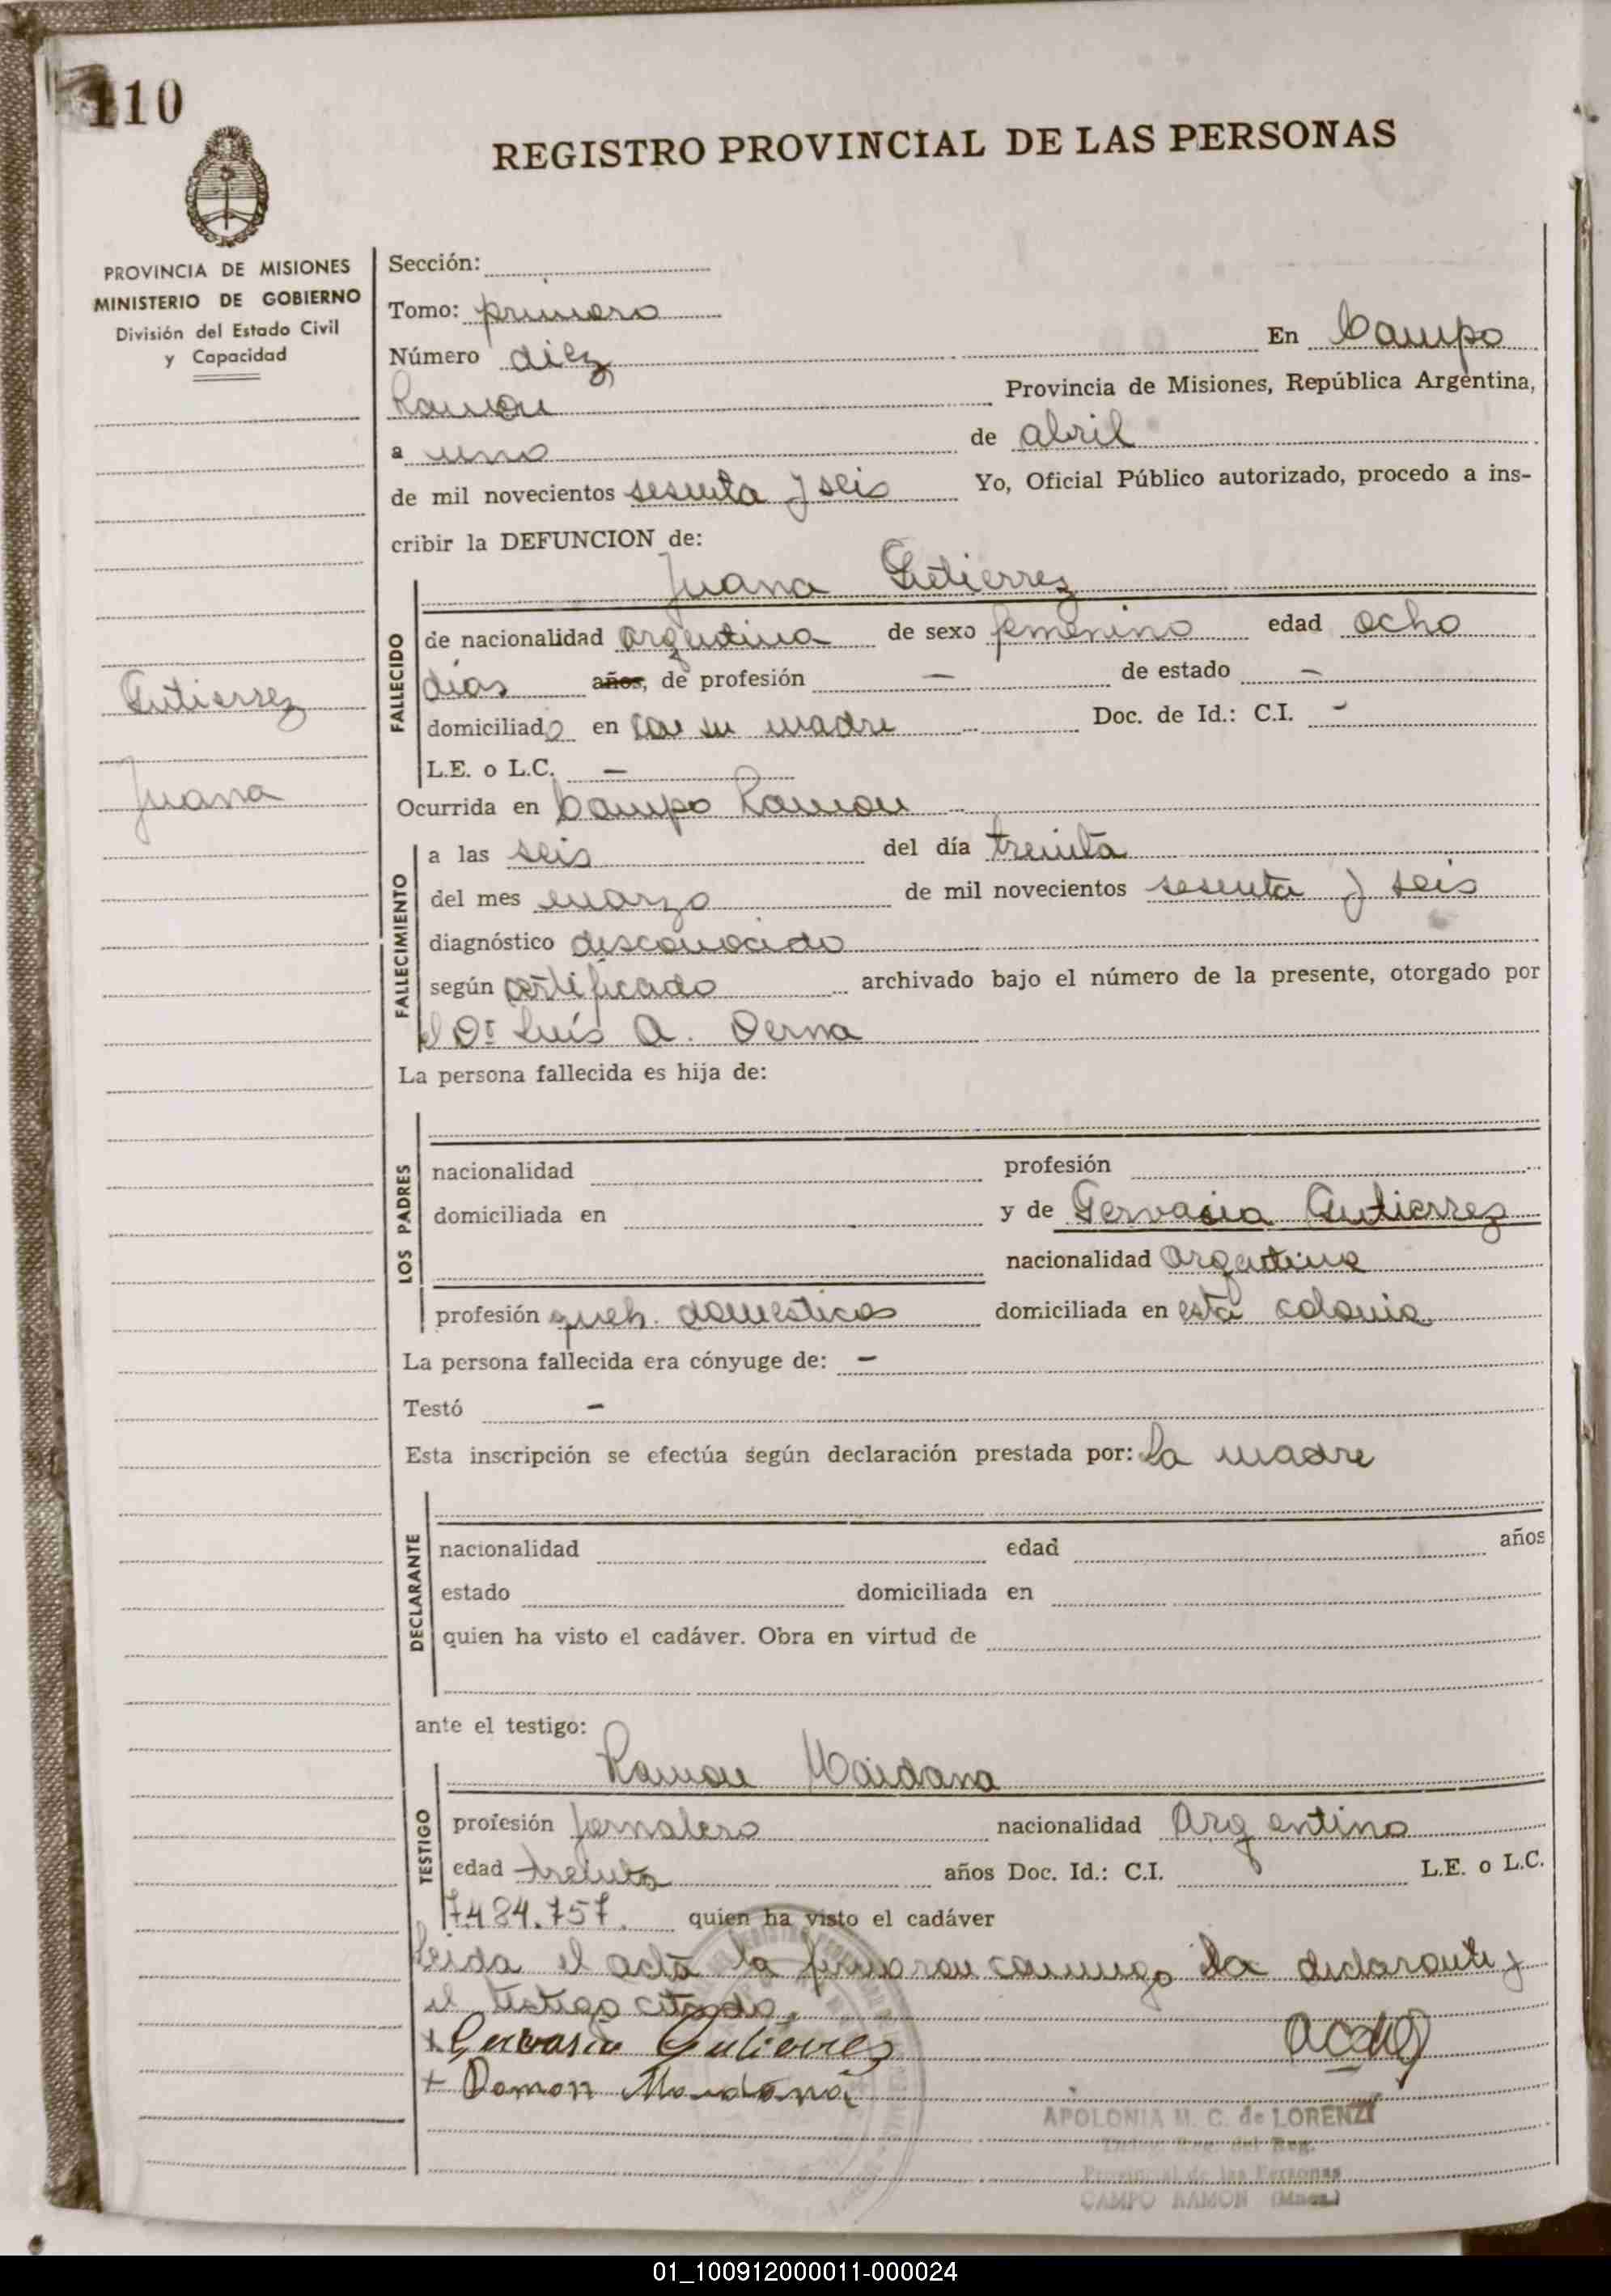 110
REGISTRO PROVINCIAL DE LAS PERSONAS
PROVINCIA DE MISIONES
MINISTERIO DE GOBIERNO
División del Estado Civil
y Capacidad
Gutierrez
Juana
Sección:
Tomo: primero
Número diez En Campo
Ramon Provincia de Misiones, República Argentina,
a uno de abril
de mil novecientos sesenta y seis Yo, Oficial Público autorizado, procedo a ins-
cribir la DEFUNCION de:
Juana Gutierrez
FALLECIDO
de nacionalidad argentina de sexo femenino edad ocho
días años, de profesión — de estado —
domiciliado en con su madre Doc. de Id.: C.I. -
L.E. o L.C. —
Ocurrida en Campo Ramon
FALLECIMIENTO
a las seis del día treinta
del mes marzo de mil novecientos sesenta y seis
diagnóstico desconocido
según certificado archivado bajo el número de la presente, otorgado por
el Dr Luís A. Derna
La persona fallecida es hija de:
LOS PADRES
nacionalidad profesión
domiciliada en y de Gervasia Gutierrez
nacionalidad argentina
profesión queh. domesticos domiciliada en esta colonia
La persona fallecida era cónyuge de: —
Testó —
Esta inscripción se efectúa según declaración prestada por: La madre
DECLARANTE
nacionalidad edad años
estado domiciliada en
quien ha visto el cadáver. Obra en virtud de
ante el testigo:
Ramon Maidana
TESTIGO
profesión jornalero nacionalidad Argentino
edad treinta años Doc. Id.: C.I. L.E. o L.C.
7484.757. quien ha visto el cadáver
Leida el acta la firmaron conmigo la declarante y
el testigo citado.
+ Gervasia Gutierrez
+ Ramon Maidana
APOLONIA M. C. de LORENZI
Provincial de las Personas
CAMPO RAMON (Mnes.)
01_100912000011-000024